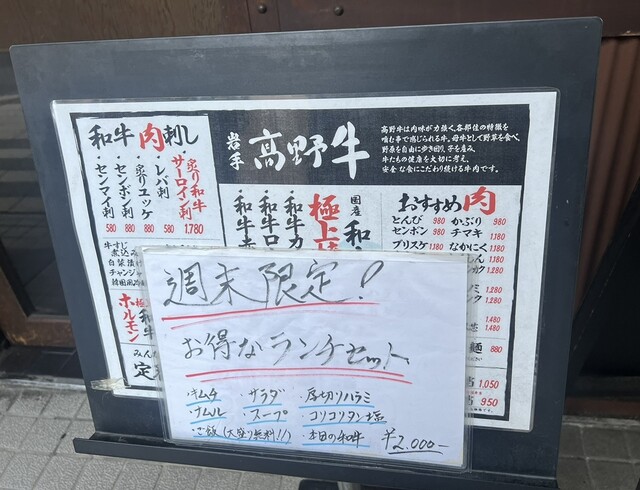 和牛肉刺し
・炙り和牛サーロイン刺 1.780
・レバ刺 880
・炙りユッケ 880
・センボン刺 880
・センマイ刺 580
岩手 高野牛
高野牛は肉味が力強く、各部位の特徴を
噛む事で感じられる牛。母牛として野草を食べ
野原を自由に歩き回り、子を産み、
牛たちの健康を大切に考え、
安全な食にこだわり続ける牛肉です。
国産
極上
・和牛カ
・和牛ロ
・和牛赤
おすすめ肉
とんび 980 かぶり 980
センボン 980 チマキ 1.180
ブリスケ 1.180 なかにく 1.180
牛すじ
煮込み
自菜漬
チャンジャ
韓国風
和牛
ホルモン
みん
定
880
1.050
950
週末限定!
お得なランチセット
・キムチ ・サラダ ・厚切りハラミ
・ナムル ・スープ ・コリコリタン塩
・ご飯(大盛り無料!!) ・本日の和牛
¥2.000-